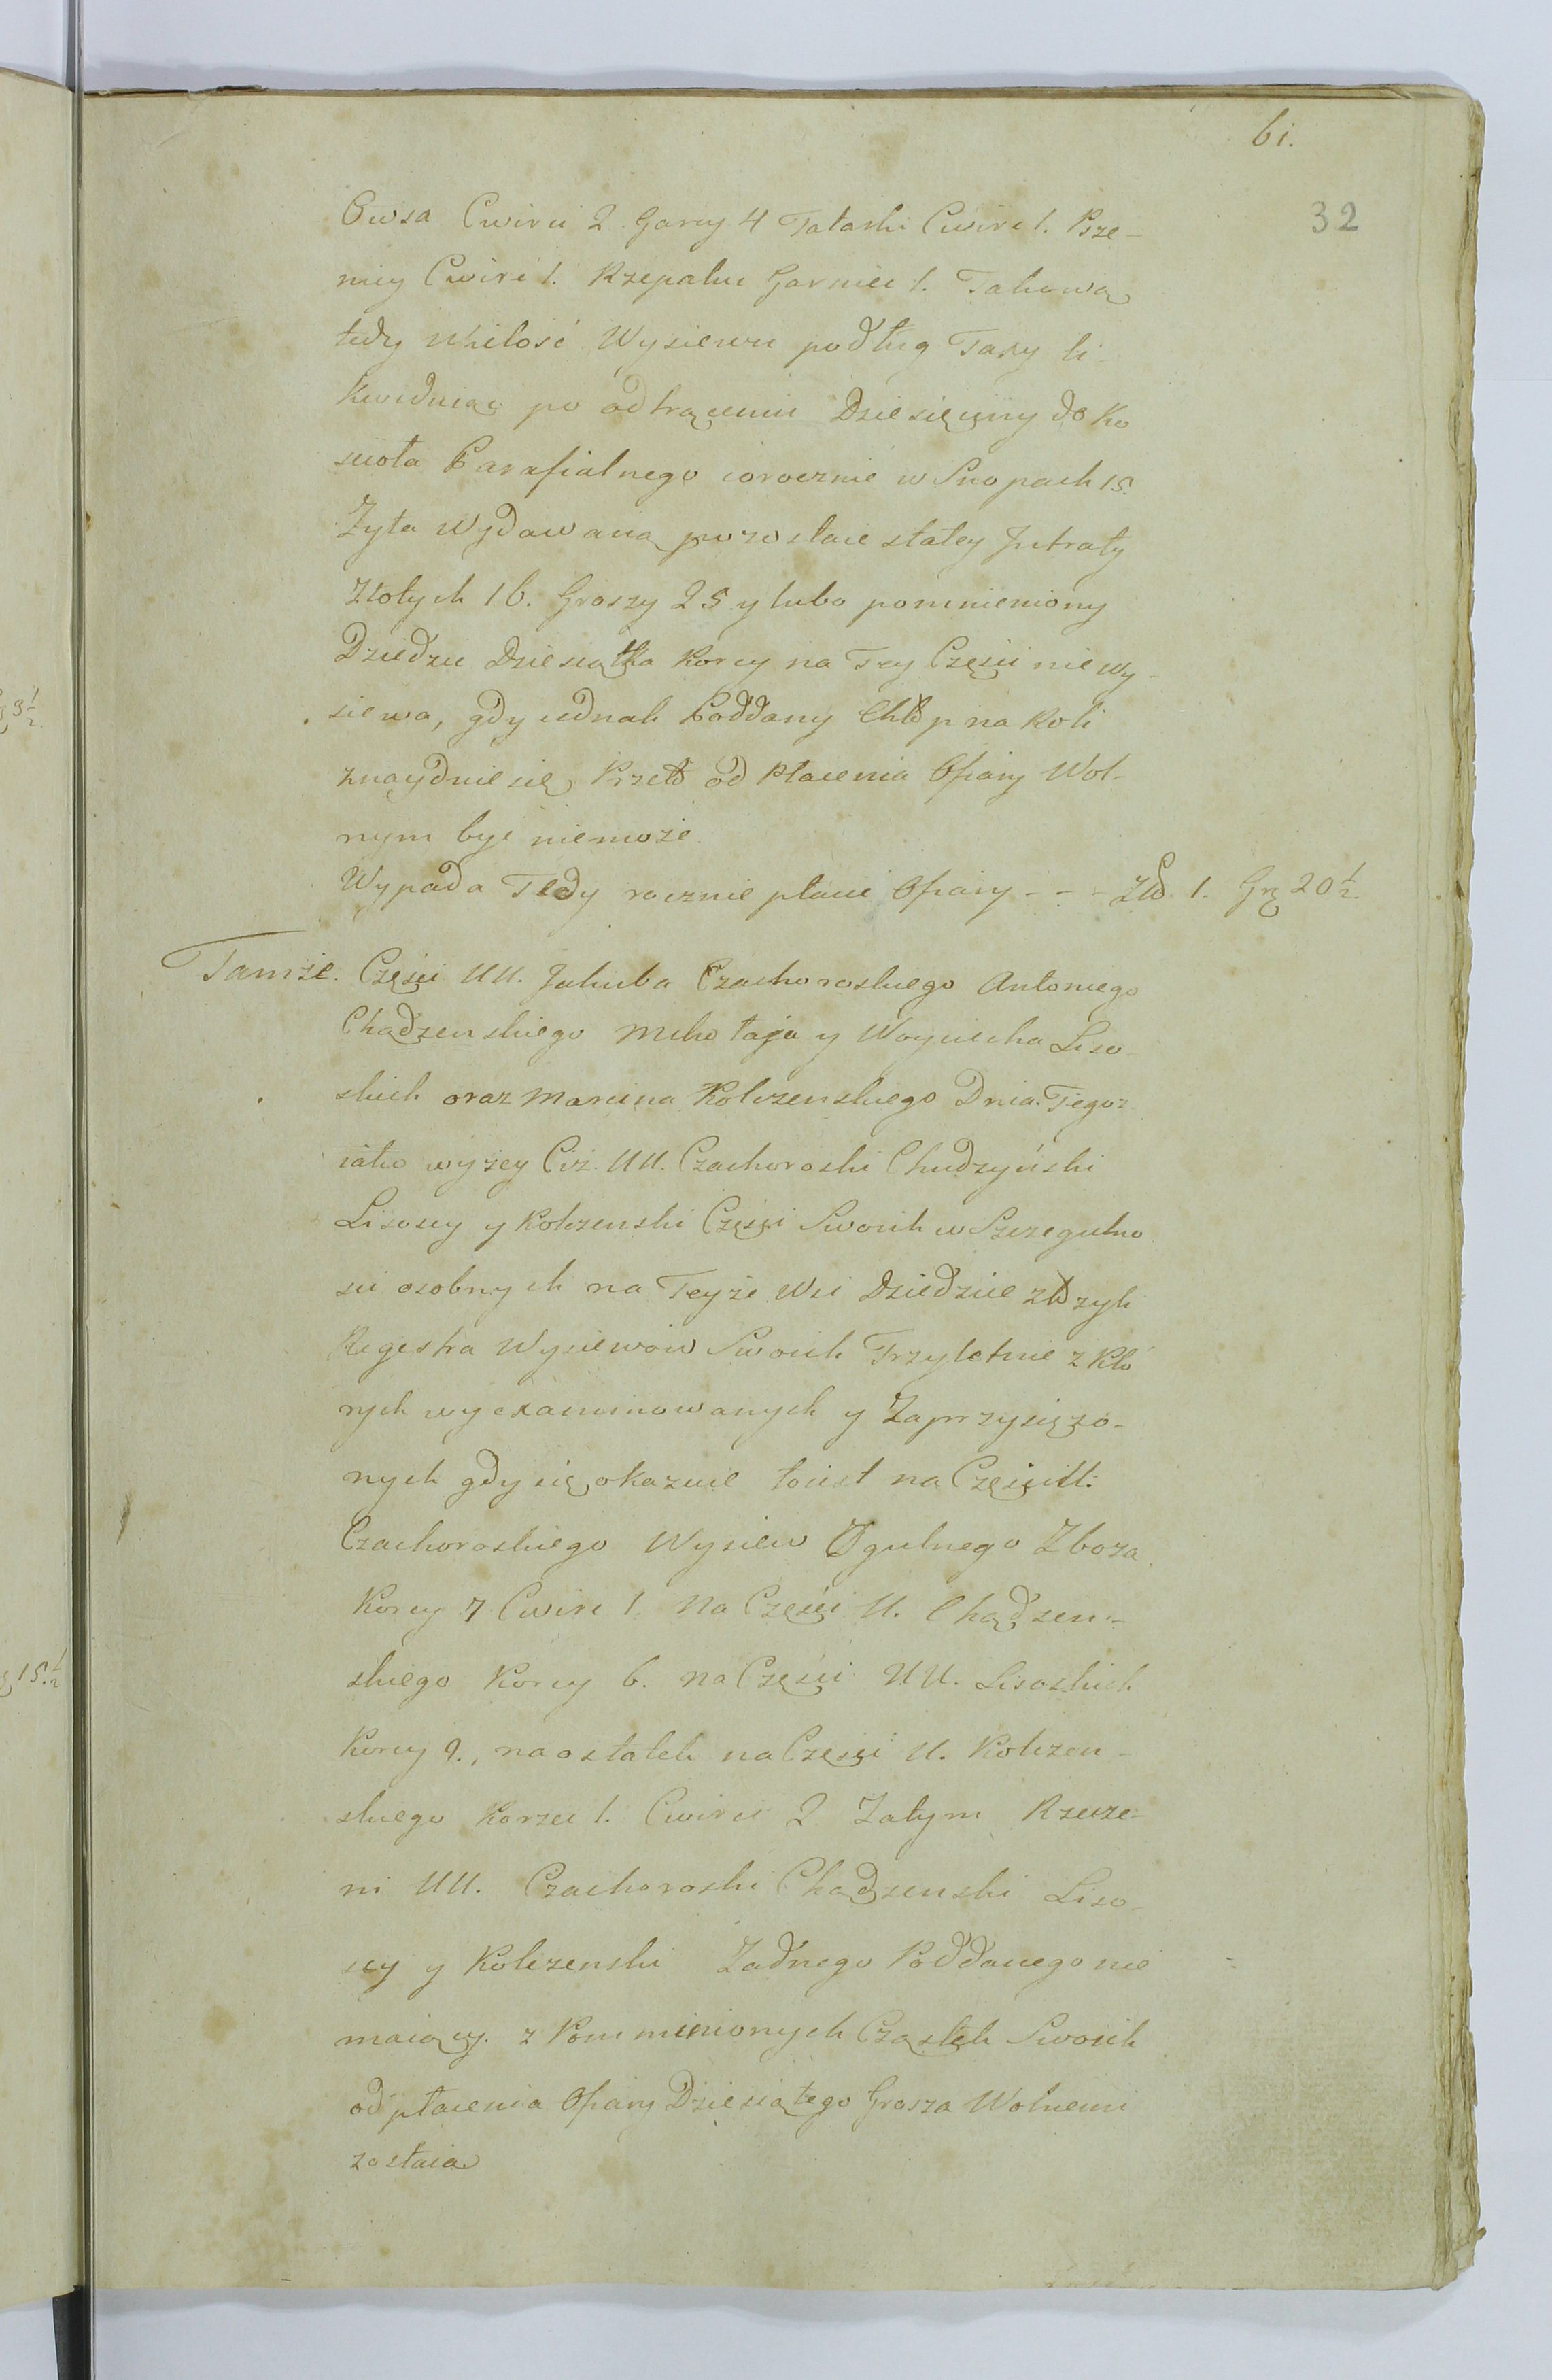 61.
32
Owsa Cwirci 2 Garcy 4 Tatarki Cwirć 1. Psze-
nicy Cwirć 1. Rzepaku Garniec 1. Takową
tedy Wielość Wysiewu podług Taxy li-
kwiduiąc po odtrąceniu Dziesięciny do Ko
scioła Parafialnego corocznie w Snopach 15.
Zyta Wydawaną pozostaie stałey Jntraty
Złotych 16. Groszy 25 y lubo pomnieniony
Dziedzic Dziesiątka Korcy na Tey Częsci nie wy-
siewa, gdy iednak Poddany Chłop na Roli
znayduie się Przeto od Płacenia Ofiary Wol-
nym być niemoże
Wypada Tedy rocznie płacić Ofiary - - - Złł. 1. Grż 20 1/2
Tamże. Części UU. Jakuba Czachoroskiego Antoniego
Chądzenskiego Mikołaja y Woyciecha Liso-
skich oraz Marcina Kolczenskiego Dnia Tegoż
iako wyżey Ciż. UU. Czachoroski Chudzyński
Lisoscy y Kolczenski Części Swoich w Szczegulno
sci osobnych na Teyże Wsi Dziedzice złożyli
Regestra Wysiewów Swoich Trzyletnie z Któ
rych wyexaminowanych y Zaprzysiężo-
nych gdy się okazuie toiest na Części U.
Czachoroskiego Wysiew Ogulnego Zboża
Korcy 7 Cwirć 1. Na Części U. Chądzen-
skiego Korcy 6. na Części UU. Lisoskich
Korcy 9., na ostatek na Części U. Kolczen-
skiego Korzec 1. Cwirci 2 Zatym Rzecze-
ni UU. Czachoroski Chądzenski Liso-
scy y Kolczenski Żadnego Poddanego nie
maiący. z Pomnienionych Cząstek Swoich
od płacenia Ofiary Dziesiątego Grosza Wolnemi
zostaią